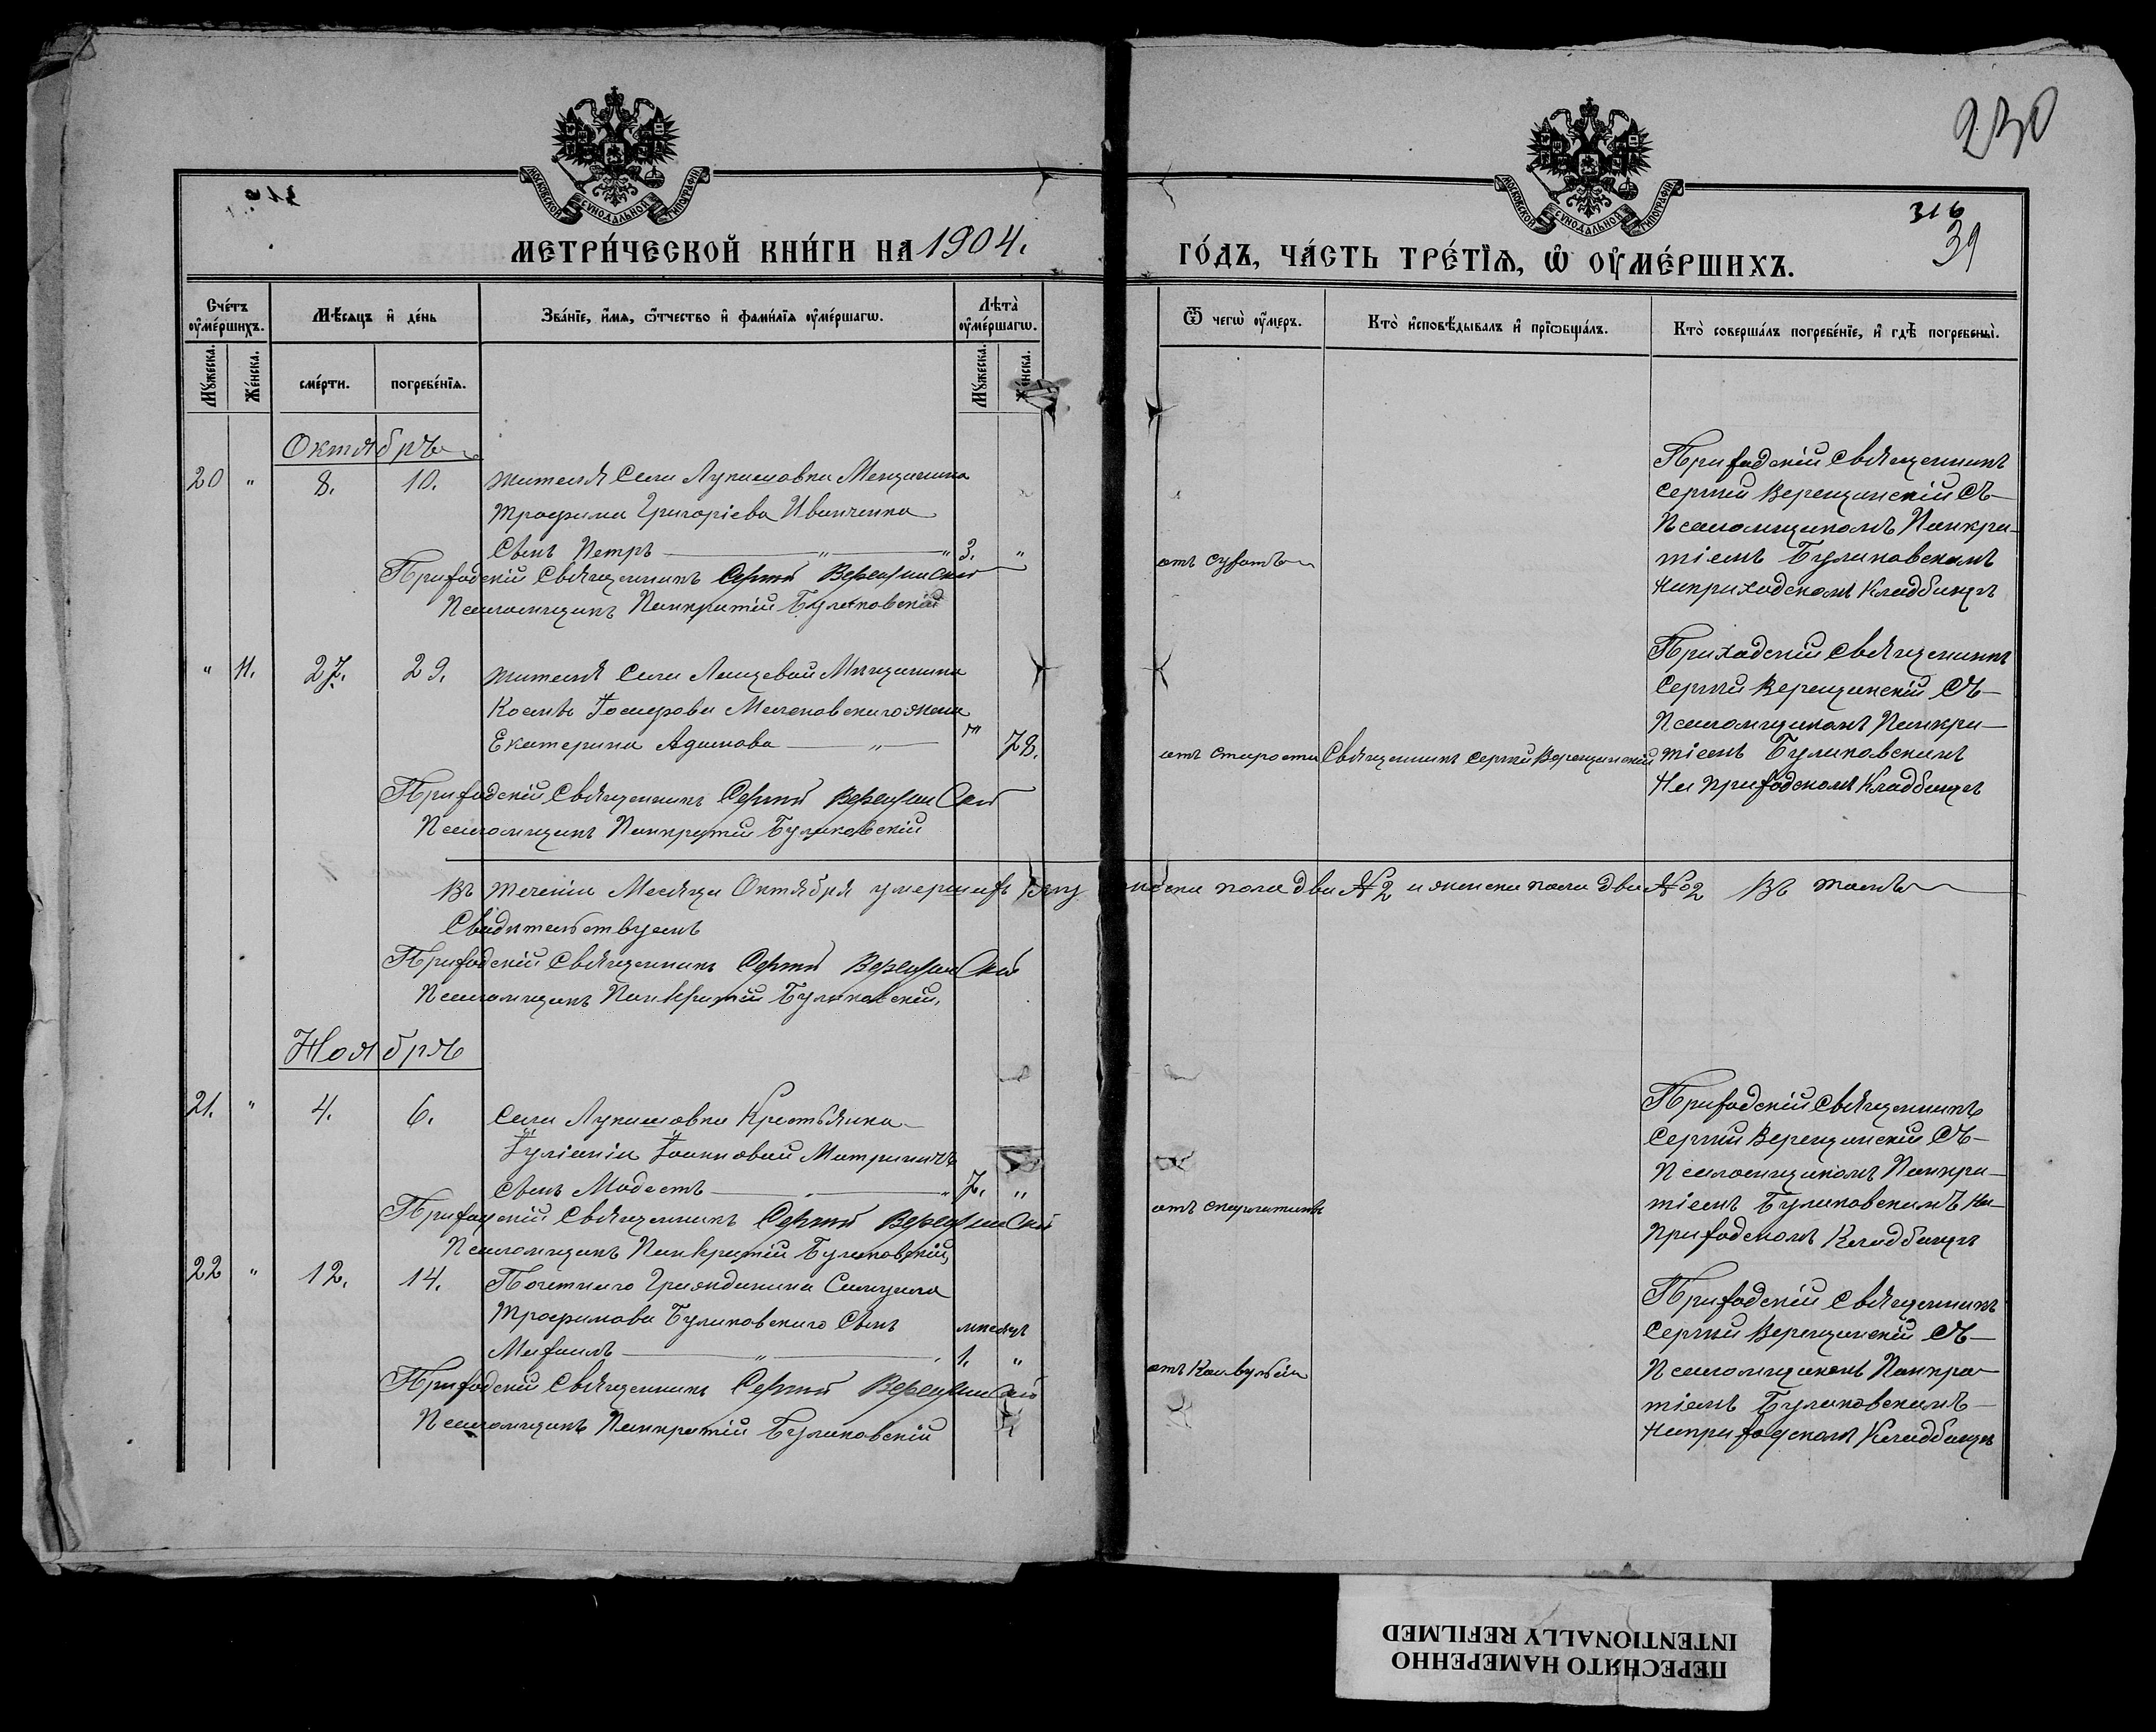 230
316
39
МОСКОВСКОЙ СУНОДАЛЬНОЙ ТИПОГРАФІИ
МОСКОВСКОЙ СУНОДАЛЬНОЙ ТИПОГРАФІИ
МЕТРИ́ЧЕСКОЙ КНИ́ГИ НА 1904.
ГО́ДЪ, ЧА́СТЬ ТРЕ́ТЇѦ, Ѡ҆ ОУ҆МЕ́РШИХЪ.
Сче́тъ оу҆ме́ршихъ.
Мѣ́сѧцъ и҆ де́нь
Зва́нїе, и҆́мѧ, ѻ҆́тчество и҆ фами́лїѧ оу҆ме́ршагѡ.
Лѣта̀ оу҆ме́ршагѡ.
Ѿ чегѡ̀ оу҆́меръ.
Кто̀ и҆сповѣ́дывалъ и҆ прїѡбща́лъ.
Кто̀ соверша́лъ погребе́нїе, и҆ гдѣ̀ погребены̀.
Мꙋ́жеска.
Же́нска.
сме́рти.
погребе́нїѧ.
Мꙋ́жеска.
Же́нска.
Октябрь
20 " 8. 10. жителя Села Лукашовки Мещанина
Трофима Григоріева Иванченка
Сынъ Петръ " " 3. "
Приходскій Священникъ Сергій Верещинскій
Псаломщикъ Панкратій Буликовскій
отъ сухотъ
Приходскій Священникъ
Сергій Верещинскій Съ
Псаломщикомъ Панкра-
тіемъ Буликовскимъ
На приходскомъ Кладбищѣ
" 11. 27. 29. жителя Села Мещанина
Косьмы Іосифова жена
Екатерина Адамова " " 78.
Приходскій Священникъ Сергій Верещинскій
Псаломщикъ Панкратій Буликовскій
отъ старости
Священникъ Сергій Верещинскій
Приходскій Священникъ
Сергій Верещинскій Съ
Псаломщикомъ Панкра-
тіемъ Буликовскимъ
На приходскомъ Кладбищѣ
Въ теченіи Месяца Октября умершихъ пола два №2 и женска пола два №2 Въ томъ
Свидѣтельствуемъ
Приходскій Священникъ Сергій Верещинскій
Псаломщикъ Панкратій Буликовскій,
Ноябрь
21. " 4. 6. Села Лукашовки Крестьянка
Іуліаніи Іоанновой
Сынъ Модестъ " 7. "
Приходскій Священникъ Сергій Верещинскій
Псаломщикъ Панкратій Буликовскій,
отъ скарлатины
Приходскій Священникъ
Сергій Верещинскій Съ
Псаломщикомъ Панкра-
тіемъ Буликовскимъ На-
приходскомъ Кладбищѣ
22 " 12. 14. Почетнаго Гражданина Самуила
Трофимова Буликовскаго Сынъ мѣсяцъ
Михаилъ " 1. "
Приходскій Священникъ Сергій Верещинскій
Псаломщикъ Панкратій Буликовскій
отъ
Приходскій Священникъ
Сергій Верещинскій Съ
Псаломщикомъ Панкра-
тіемъ Буликовскимъ
На приходскомъ Кладбищѣ
ПЕРЕСНЯТО НАМЕРЕННО
INTENTIONALLY REFILMED